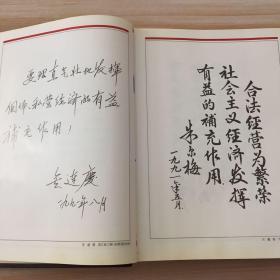 要理直气壮地发挥
个体私营经济的有益
补充作用！
一九九一年八月
合法经营为繁荣
社会主义经济发挥
有益的补充作用
一九九一年五月